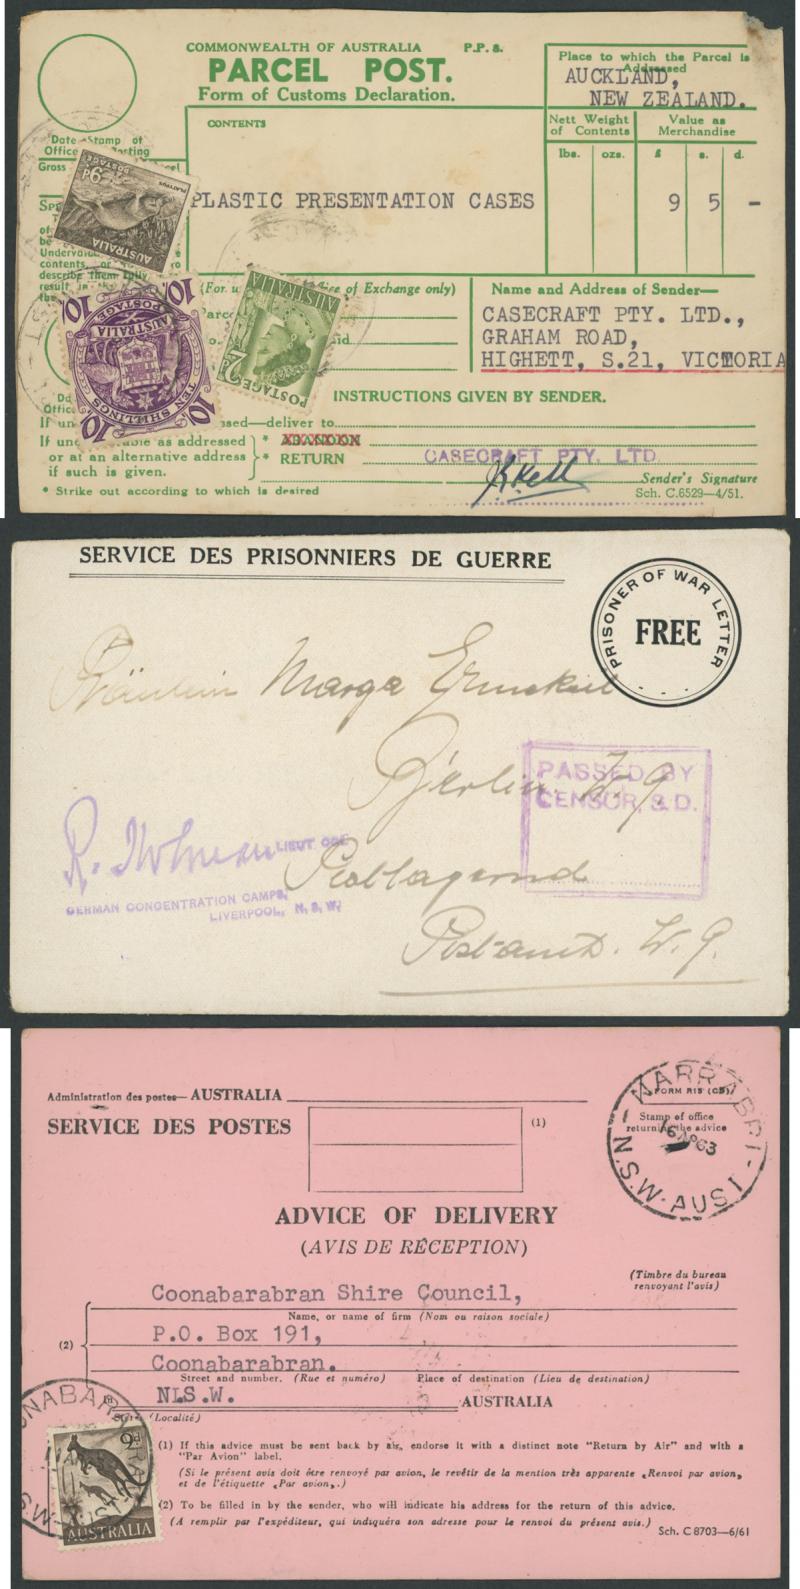 COMMONWEALTH OF AUSTRALIA P.P. 8.
PARCEL POST.
Form of Customs Declaration.
Place to which the Parcel is Addressed
AUCKLAND,
NEW ZEALAND.
Date Stamp of
Office Posting
Gross
CONTENTS
Nett Weight of Contents
Value as Merchandise
lbs. ozs. £ s. d.
PLASTIC PRESENTATION CASES 9 5 -
9d
POSTAGE
PLATYPUS
AUSTRALIA
10
AUSTRALIA
POSTAGE
TEN SHILLINGS
10
AUSTRALIA
POSTAGE 2
describe them fully
result in
(For of Exchange only)
Name and Address of Sender—
CASECRAFT PTY. LTD.,
GRAHAM ROAD,
HIGHETT, S.21, VICTORIA
INSTRUCTIONS GIVEN BY SENDER.
—deliver to
If as addressed
or at an alternative address
if such is given.
* ABANDON
* RETURN
CASECRAFT PTY. LTD.
Sender's Signature
* Strike out according to which is desired
Sch. C.6529—4/51.
SERVICE DES PRISONNIERS DE GUERRE
PRISONER OF WAR LETTER
FREE
Fräulein Marga
Berlin W. 9.
PASSED BY
CENSOR, S.D.
LIEUT COL
GERMAN CONCENTRATION CAMPS,
LIVERPOOL, N.S.W.
Postlagernd
Postamt. W. 9.
Administration des postes— AUSTRALIA
SERVICE DES POSTES
(1)
FORM R15 (C5)
Stamp of office
returning the advice
NARRABRI
16 63
N.S.W-AUST
ADVICE OF DELIVERY
(AVIS DE RÉCEPTION)
(Timbre du bureau
renvoyant l'avis)
Coonabarabran Shire Council,
Name, or name of firm (Nom ou raison sociale)
(2)
P.O. Box 191,
Coonabarabran.
Street and number. (Rue et numéro) Place of destination (Lieu de destination)
N.S.W.
AUSTRALIA
(Localité)
AUSTRALIA
(1) If this advice must be sent back by air, endorse it with a distinct note "Return by Air" and with a
"Par Avion" label.
(Si le présent avis doit être renvoyé par avion, le revêtir de la mention très apparente «Renvoi par avion»
et de l'étiquette «Par avion».)
(2) To be filled in by the sender, who will indicate his address for the return of this advice.
(A remplir par l'expéditeur, qui indiquéra son adresse pour le renvoi du présent avis.)
Sch. C 8703—6/61